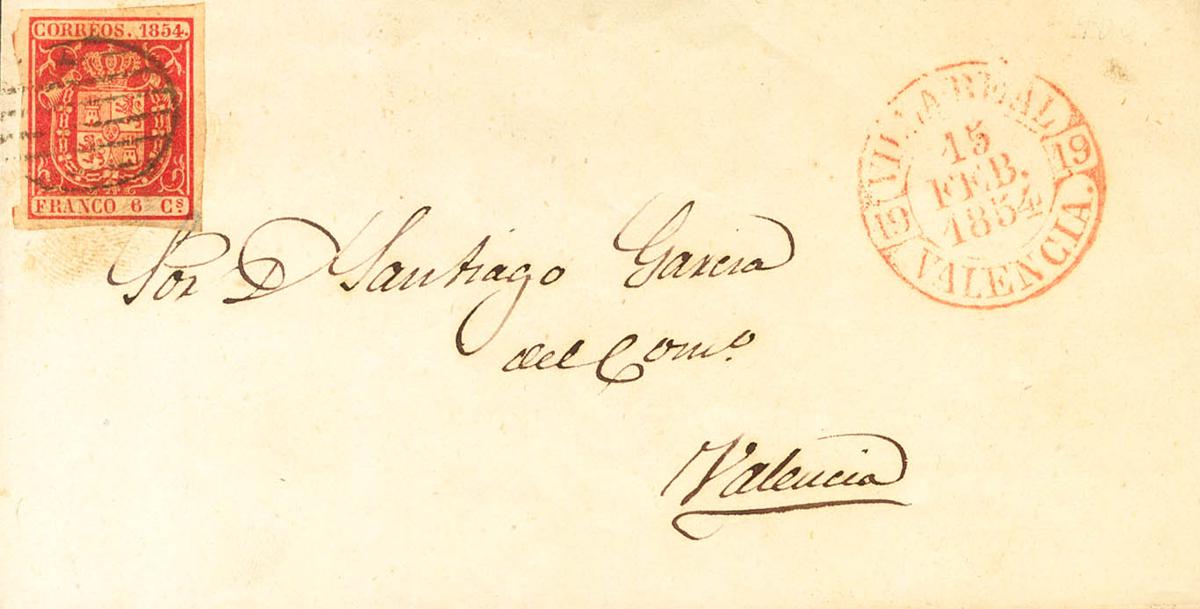 CORREOS. 1854.
FRANCO 6 Cs
VILLARREAL
19 19
15
FEB.
1854
VALENCIA.
Sor D Santiago Garcia
del Como
Valencia